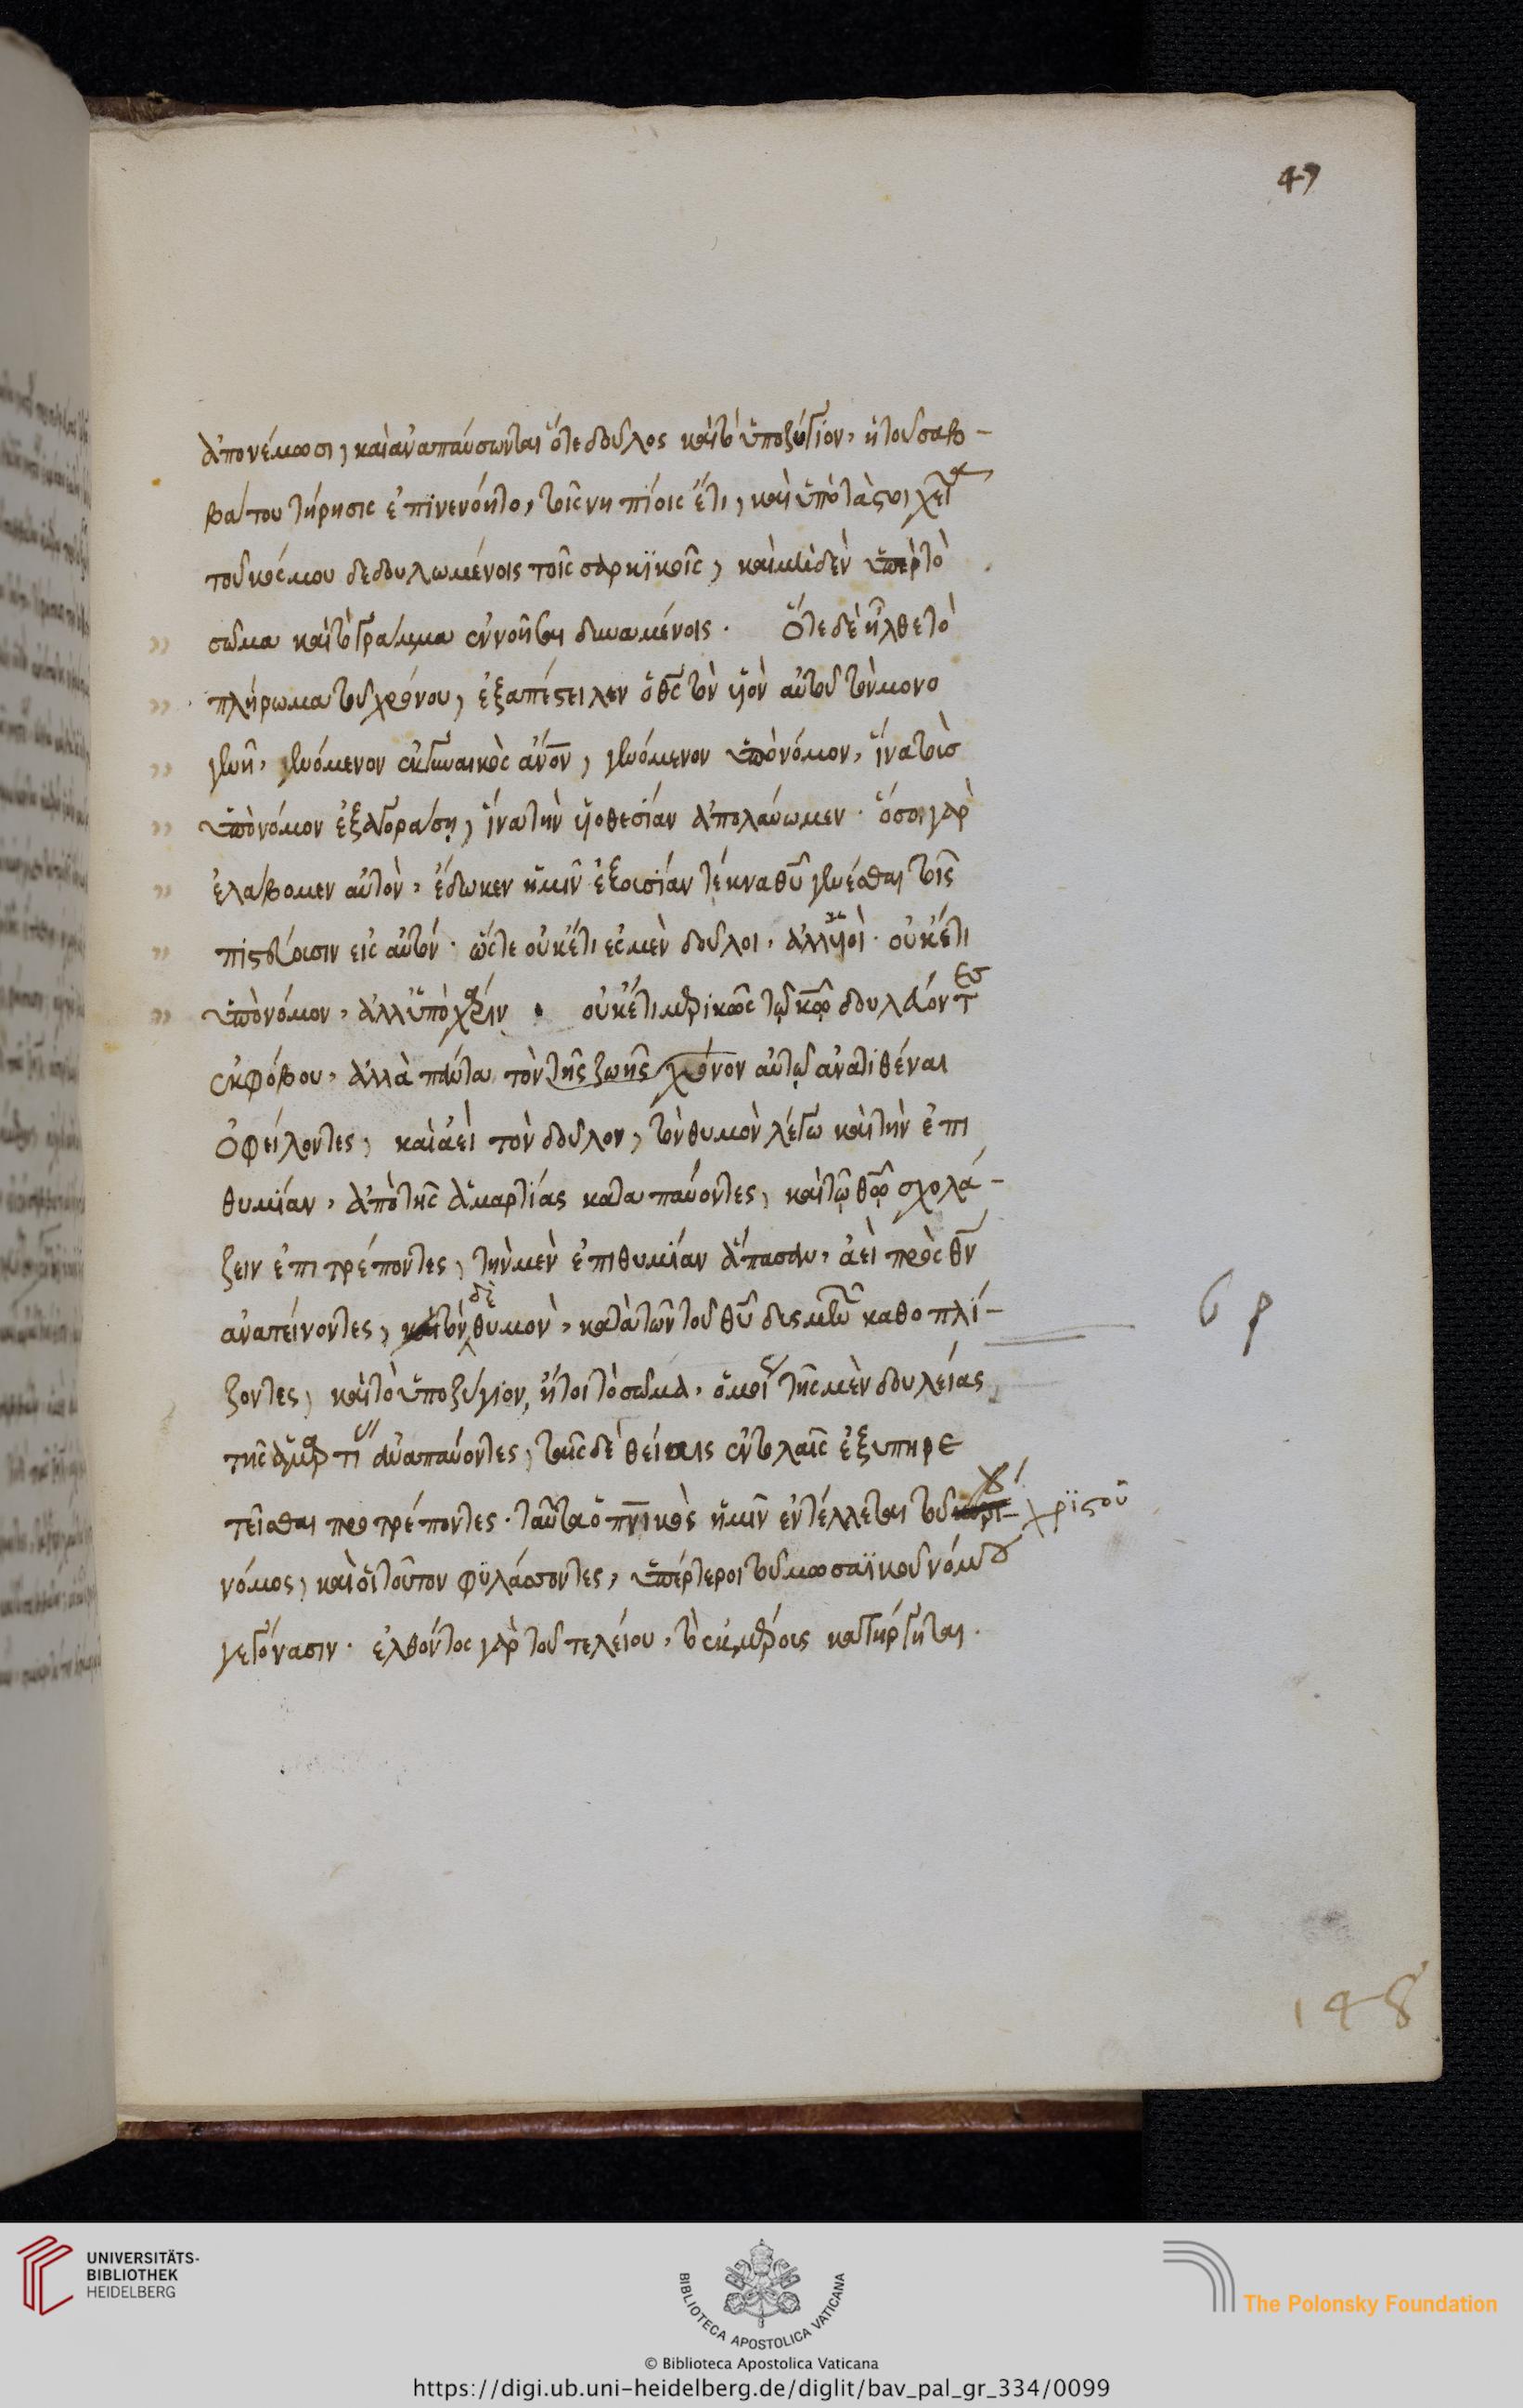 49
ἀπονέμωσι, καὶ ἀναπαύσωνται ὅτε δοῦλος καὶ τὸ ὑποζύγιον, ἡ τοῦ σαβ-
βάτου τήρησις ἐπινενόητο, τοῖς νηπίοις ἔτι, καὶ ὑπὸ τὰ στοιχεῖα
τοῦ κόσμου δεδουλωμένοις τοῖς σαρκϊκοῖς, καὶ μηδὲν ὑπὲρ τὸ
σῶμα καὶ τὸ γράμμα ἐννοῆσαι δυναμένοις. Ὅτε δὲ ἦλθε τὸ
πλήρωμα τοῦ χρόνου, ἐξαπέστειλεν ὁ θς τὸν υἱὸν αὐτοῦ τὸν μονο
γενῆ, γενόμενον ἐκ γυναικὸς ἄνον, γενόμενον ὑπὸ νόμον, ἵνα τοὺς
ὑπὸ νόμον ἐξαγοράσῃ, ἵνα τὴν υἱοθεσίαν ἀπολαύωμεν. ὅσοι γὰρ
ἐλάβομεν αὐτὸν, ἔδωκεν ἡμῖν ἐξουσίαν τέκνα θυ γενέσθαι τοῖς
πιστεύουσιν εἰς αὐτόν. ὥστε οὐκέτι ἐσμὲν δοῦλοι, ἀλλ υἱοὶ. οὐκέτι
ὑπὸ νόμον, ἀλλ ὑπὸ χάριν. οὐκέτι μερικῶς τῷ κω δουλεύοντες
ἐκ φόβου, ἀλλὰ πάντα τὸν τῆς ζωῆς χρόνον αὐτῷ ἀνατιθέναι
ὀφείλοντες, καὶ ἀεὶ τὸν δοῦλον, τὸν θυμὸν λέγω καὶ τὴν ἐπι
θυμίαν, ἀπὸ τῆς ἁμαρτίας καταπαύοντες, καὶ τῷ θω σχολά-
ζειν ἐπιτρέποντες, τὴν μὲν ἐπιθυμίαν ἅπασαν, ἀεὶ πρὸς θν
ἀνατείνοντες, τὸν δὲ θυμὸν, κατὰ τῶν τοῦ θυ δυσμενῶν καθοπλί-
ζοντες, καὶ τὸ ὑποζύγιον, ἤτοι τὸ σῶμα, ὁμοίως τῆς μὲν δουλείας
τῆς ἁμαρτίας ἀναπαύοντες, ταῖς δὲ θείαις ἐντολαῖς ἐξυπηρε
τεῖσθαι προτρέποντες. ταῦτα ὁ πνικὸς ἡμῖν ἐντέλλεται τοῦ χριστοῦ
νόμος, καὶ οἱ τοῦτον φυλάσσοντες, ὑπέρτεροι τοῦ μωσαϊκοῦ νόμου
γεγόνασιν. ἐλθόντος γὰρ τοῦ τελείου, τὸ ἐκ μέρους κατήργηται.
148
UNIVERSITÄTS-
BIBLIOTHEK
HEIDELBERG
BIBLIOTECA APOSTOLICA VATICANA
The Polonsky Foundation
© Biblioteca Apostolica Vaticana
https://digi.ub.uni-heidelberg.de/diglit/bav_pal_gr_334/0099